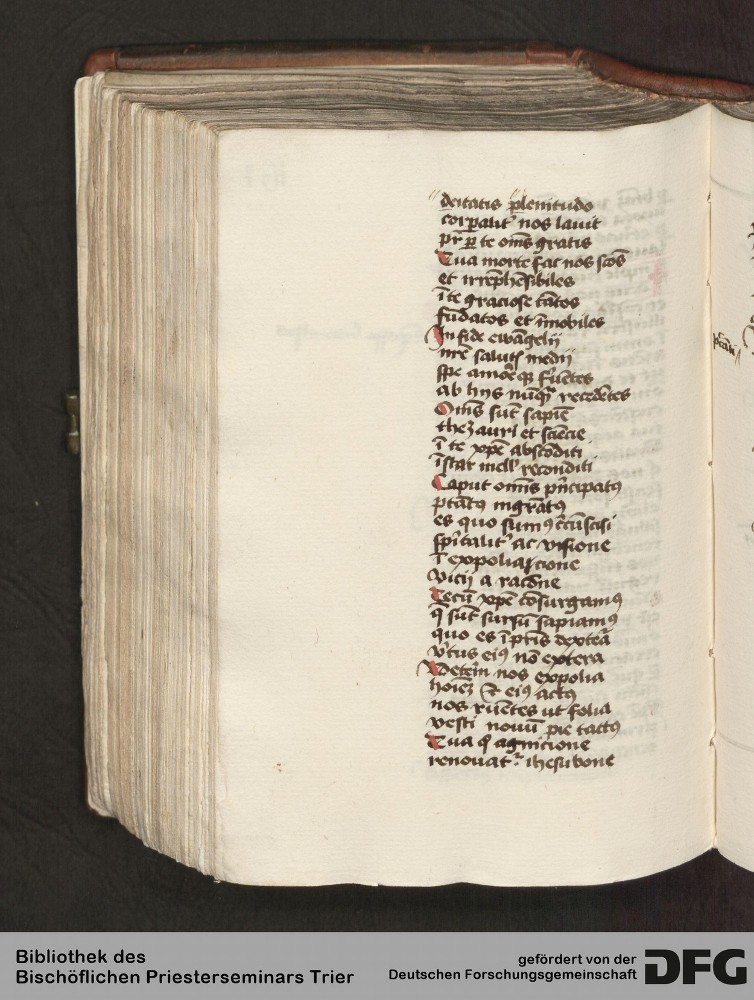 deitatis plenitudo
corꝑalit᷑ nos lauit
pr̄ ꝑ te om̄s gratis
Tua morte fac nos sc̄os
et irrep̄hēsibiles
ī te graciose tātos
fūdatos et īmobiles
In fide ewāgelij
nr̄e salutꝭ medij
spe amōeqꝫ fruētes
ab hijs nūqᷓ recedētes
Om̄s sūt sapiē
thezauri et sciēcie
ī te xp̄e abscōditi
īstar mell᷑ recōnditi
Caput omīs pͥncipatꝰ
ptātꝰ
es quo sumꝰ cͥcūscisi
spͥtalit᷑ ac visione
ī expoliacione
vicij a racōne
Tecū xp̄e cōsurgamꝰ
q̄ sūt sursū sapiamꝰ
quo es ī ptͥs dexteᷓ
vͥtus eiꝰ nō extera
Veterē nos expolia
hoīeꝫ et eiꝰ actꝰ
nos ruētes ut folia
vesti nouū pie tactꝰ
Tua qͥ agnicione
renouat᷑ ihesu bone
Bibliothek des
Bischöflichen Priesterseminars Trier
gefördert von der
Deutschen Forschungsgemeinschaft
DFG